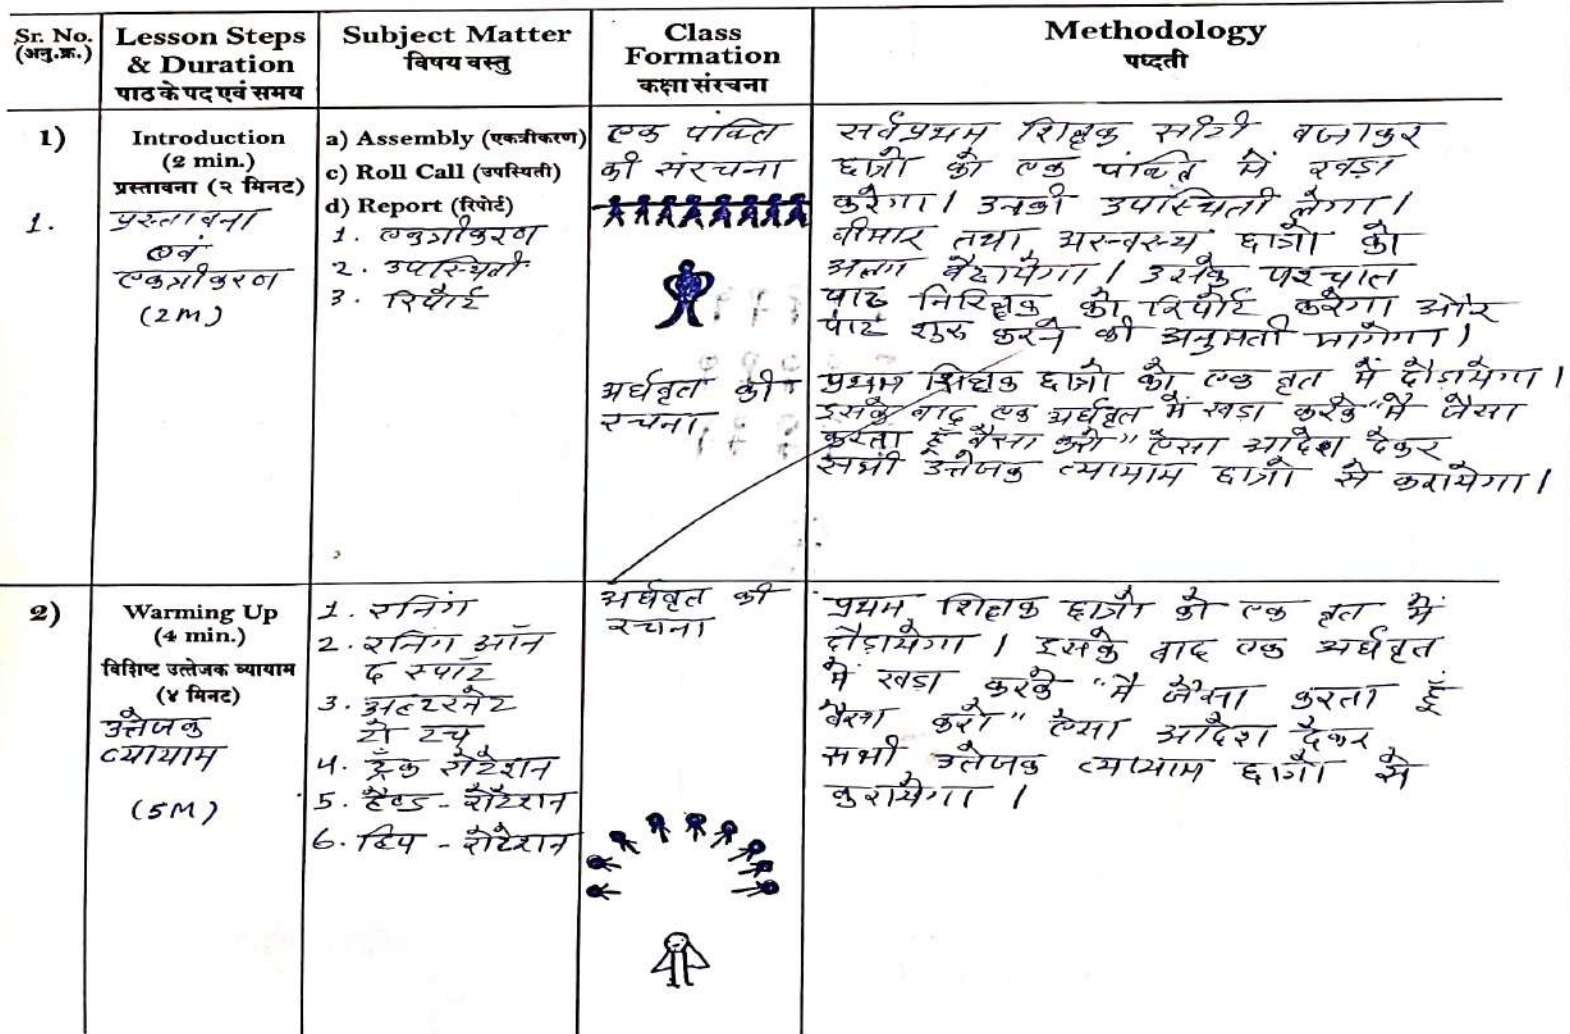 Sr. No. (अनु.क्र.)
Lesson Steps & Duration
पाठ के पद एवं समय
Subject Matter
विषय वस्तु
Class Formation
कक्षा संरचना
Methodology
पध्दती
1)
Introduction
(2 min.)
प्रस्तावना (२ मिनट)
1.
प्रस्तावना
एवं
एकत्रीकरण
(2M)
a) Assembly (एकत्रीकरण)
c) Roll Call (उपस्थिती)
d) Report (रिपोर्ट)
1. एकत्रीकरण
2. उपस्थिती
3. रिपोर्ट
एक पंक्ति
की संरचना
अर्धवृत की
रचना
सर्वप्रथम शिक्षक सीटी बजाकर
छात्रो को एक पंक्ति में खड़ा
करेगा। उनकी उपस्थिती लेगा।
बीमार तथा अस्वस्थ छात्रो को
अलग बैठायेगा। उसके पश्चात
पाठ निरिक्षक को रिपोर्ट करेगा और
पाठ शुरू करने की अनुमती मांगेगा।
प्रथम शिक्षक छात्रो को एक वृत में दौडायेगा।
इसके बाद एक अर्धवृत में खड़ा करके "मै जैसा
करता हूँ वैसा करो" ऐसा आदेश देकर
सभी उत्तेजक व्यामाम छात्रो से करायेगा।
2)
Warming Up
(4 min.)
विशिष्ट उत्तेजक व्यायाम
(४ मिनट)
उत्तेजक
व्यायाम
(5M)
1. रनिंग
2. रनिंग ऑन
द स्पॉट
3. अल्टरनेट
टो टच
4. ट्रँक रोटेशन
5. हैण्ड - रोटेशन
6. हिप - रोटेशन
अर्धवृत की
रचना
प्रथम शिक्षक छात्रो को एक वृत में
दौड़ायेगा। इसके बाद एक अर्धवृत
में खड़ा करके "मै जैसा करता हूँ
वैसा करो" ऐसा आदेश देकर
सभी उतेजक व्यायाम छात्रो से
करायेगा।